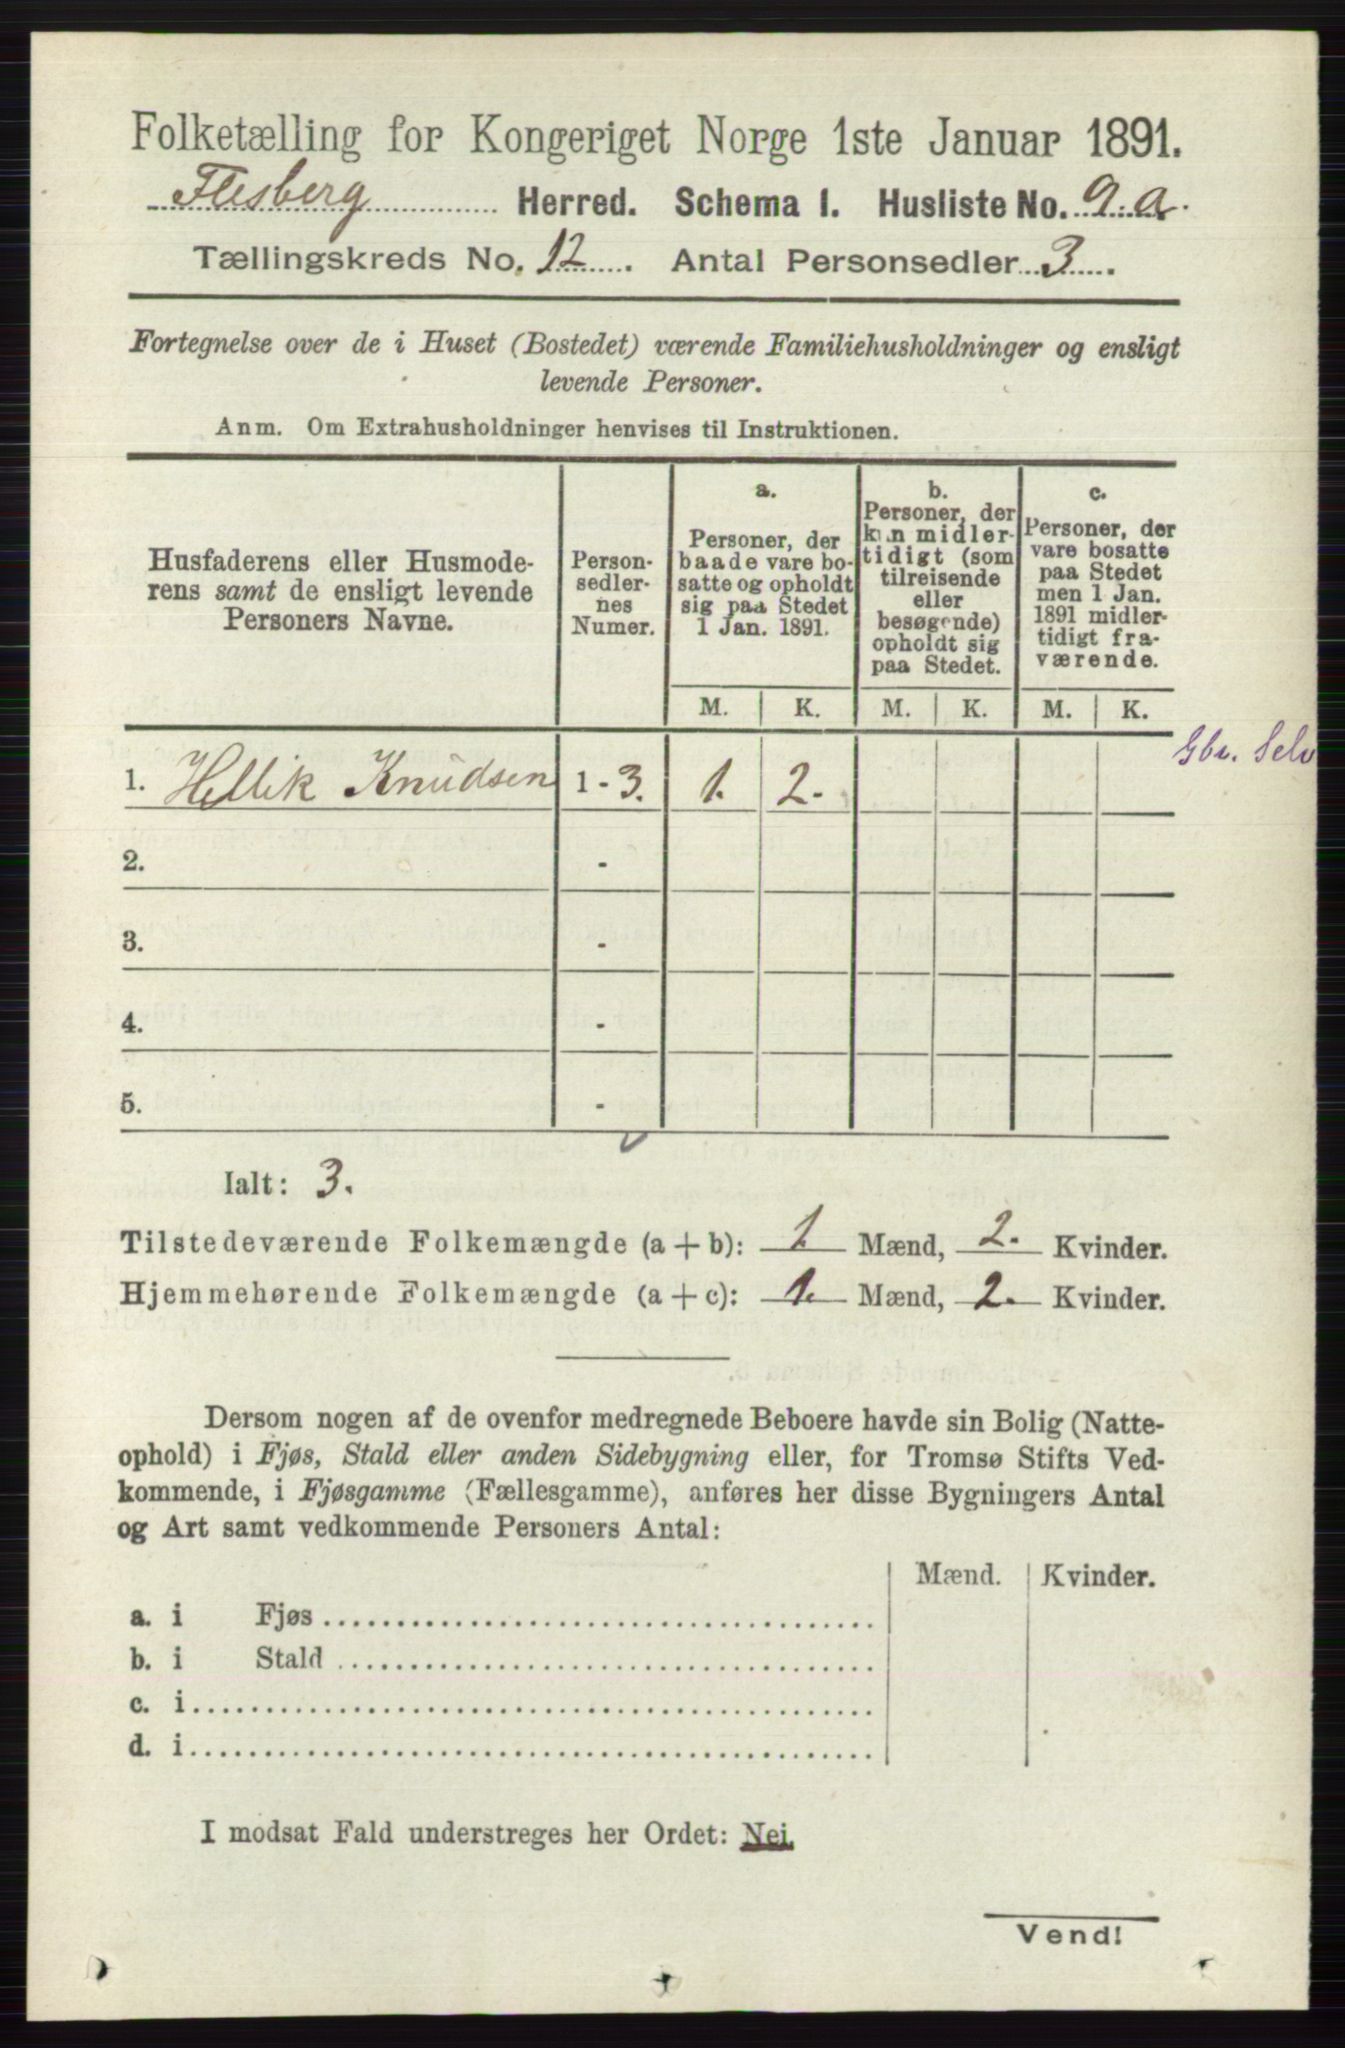 Folketælling for Kongeriget Norge 1ste Januar 1891.
Flesberg Herred. Schema I. Husliste No. 9.a.
Tællingskreds No. 12. Antal Personsedler 3.
Fortegnelse over de i Huset (Bostedet) værende Familiehusholdninger og ensligt
levende Personer.
Anm. Om Extrahusholdninger henvises til Instruktionen.
Husfaderens eller Husmode-
rens samt de ensligt levende
Personers Navne.
Person-
sedler-
nes
Numer.
a.
Personer, der
baade vare bo-
satte og opholdt
sig paa Stedet
1 Jan. 1891.
b.
Personer, der
kun midler-
tidigt (som
tilreisende
eller
besøgende)
opholdt sig
paa Stedet.
c.
Personer, der
vare bosatte
paa Stedet
men 1 Jan.
1891 midler-
tidigt fra-
værende.
M. K. M. K. M. K.
Gbr. Selv
1. Hellik Knudsen 1 - 3. 1. 2.
2. -
3. -
4. -
5. -
Ialt: 3.
Tilstedeværende Folkemængde (a + b): 1 Mænd, 2. Kvinder.
Hjemmehørende Folkemængde (a + c): 1. Mænd, 2. Kvinder.
Dersom nogen af de ovenfor medregnede Beboere havde sin Bolig (Natte-
ophold) i Fjøs, Stald eller anden Sidebygning eller, for Tromsø Stifts Ved-
kommende, i Fjøsgamme (Fællesgamme), anføres her disse Bygningers Antal
og Art samt vedkommende Personers Antal:
Mænd. Kvinder.
a. i Fjøs
b. i Stald
c. i
d. i
I modsat Fald understreges her Ordet: Nei.
Vend!